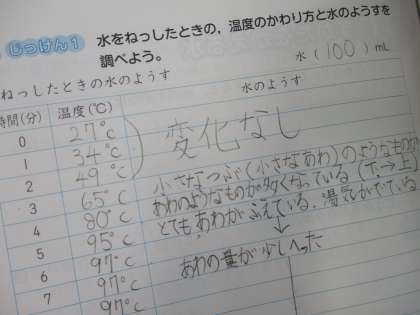 じっけん1 水をねっしたときの,温度のかわり方と水のようすを
調べよう。
水 (100) mL
ねっしたときの水のようす
時間(分) 温度(℃) 水のようす
0 27℃
1 34℃
2 49℃
変化なし
3 65℃ 小さなつぶ(小さなあわ)のようなものが
4 80℃ あわのようなものが多くなっている(下→上)
5 95℃ とてもあわがふえている。湯気がでている
6 97℃ ↓
7 97℃ あわの量が少しへった
97℃